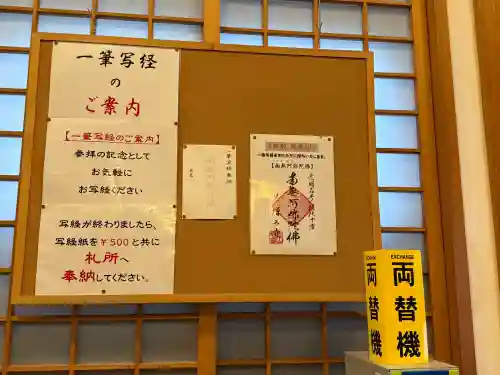 一筆写経
の
ご案内
【一筆写経のご案内】
参拝の記念として
お気軽に
お写経ください
写経が終わりましたら、
写経紙を￥500と共に
札所へ
奉納してください。
【南無阿弥陀佛】
南無阿弥陀佛
EXCHANGE
両替機
両替機